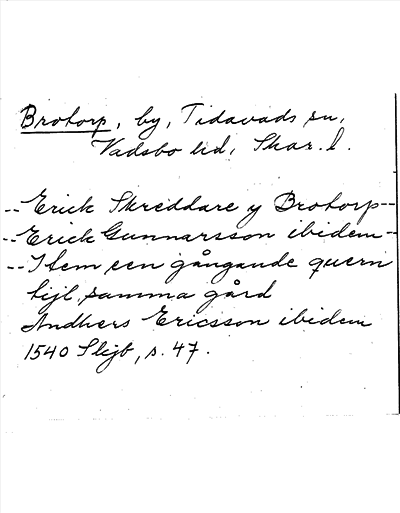 Brotorp, by, Tidavads sn,
Vadsbo hd, Skar. l.
-- Erick Skreddare y Brotorp --
-- Erick Gunnarsson ibidem --
-- Item een gångande quern
tijl samma gård
Andhers Ericsson ibidem
1540 Slijb, s. 47.